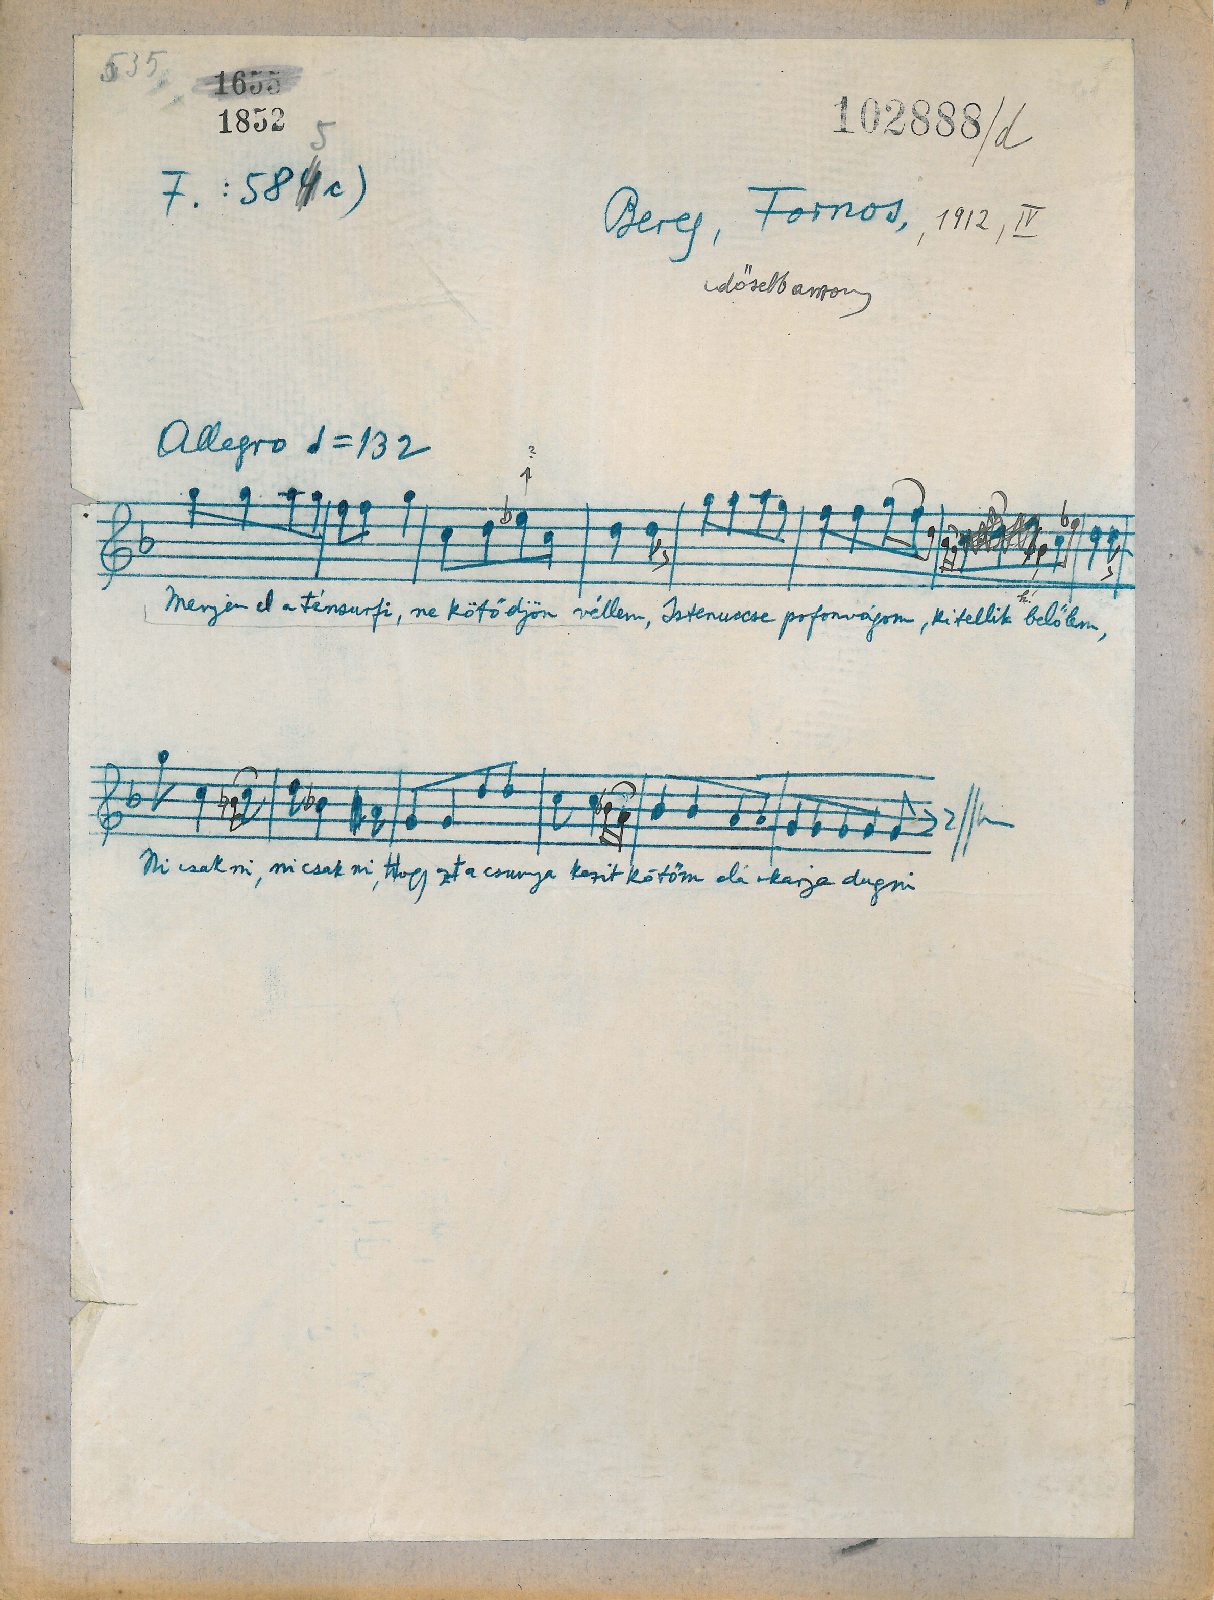 535
1655
1852
102888/d
5
F. : 584 c)
Bereg, Fornos, , 1912, IV
idősebb asszony
Allegro ♩=132
?
Menjen el a ténsurfi, ne kötődjön véllem, Istenuccse pofonvágom, kitellik belőlem,
Ni csak ni, ni csak ni, Hogy a csunya kezit kötőm alá akarja dugni